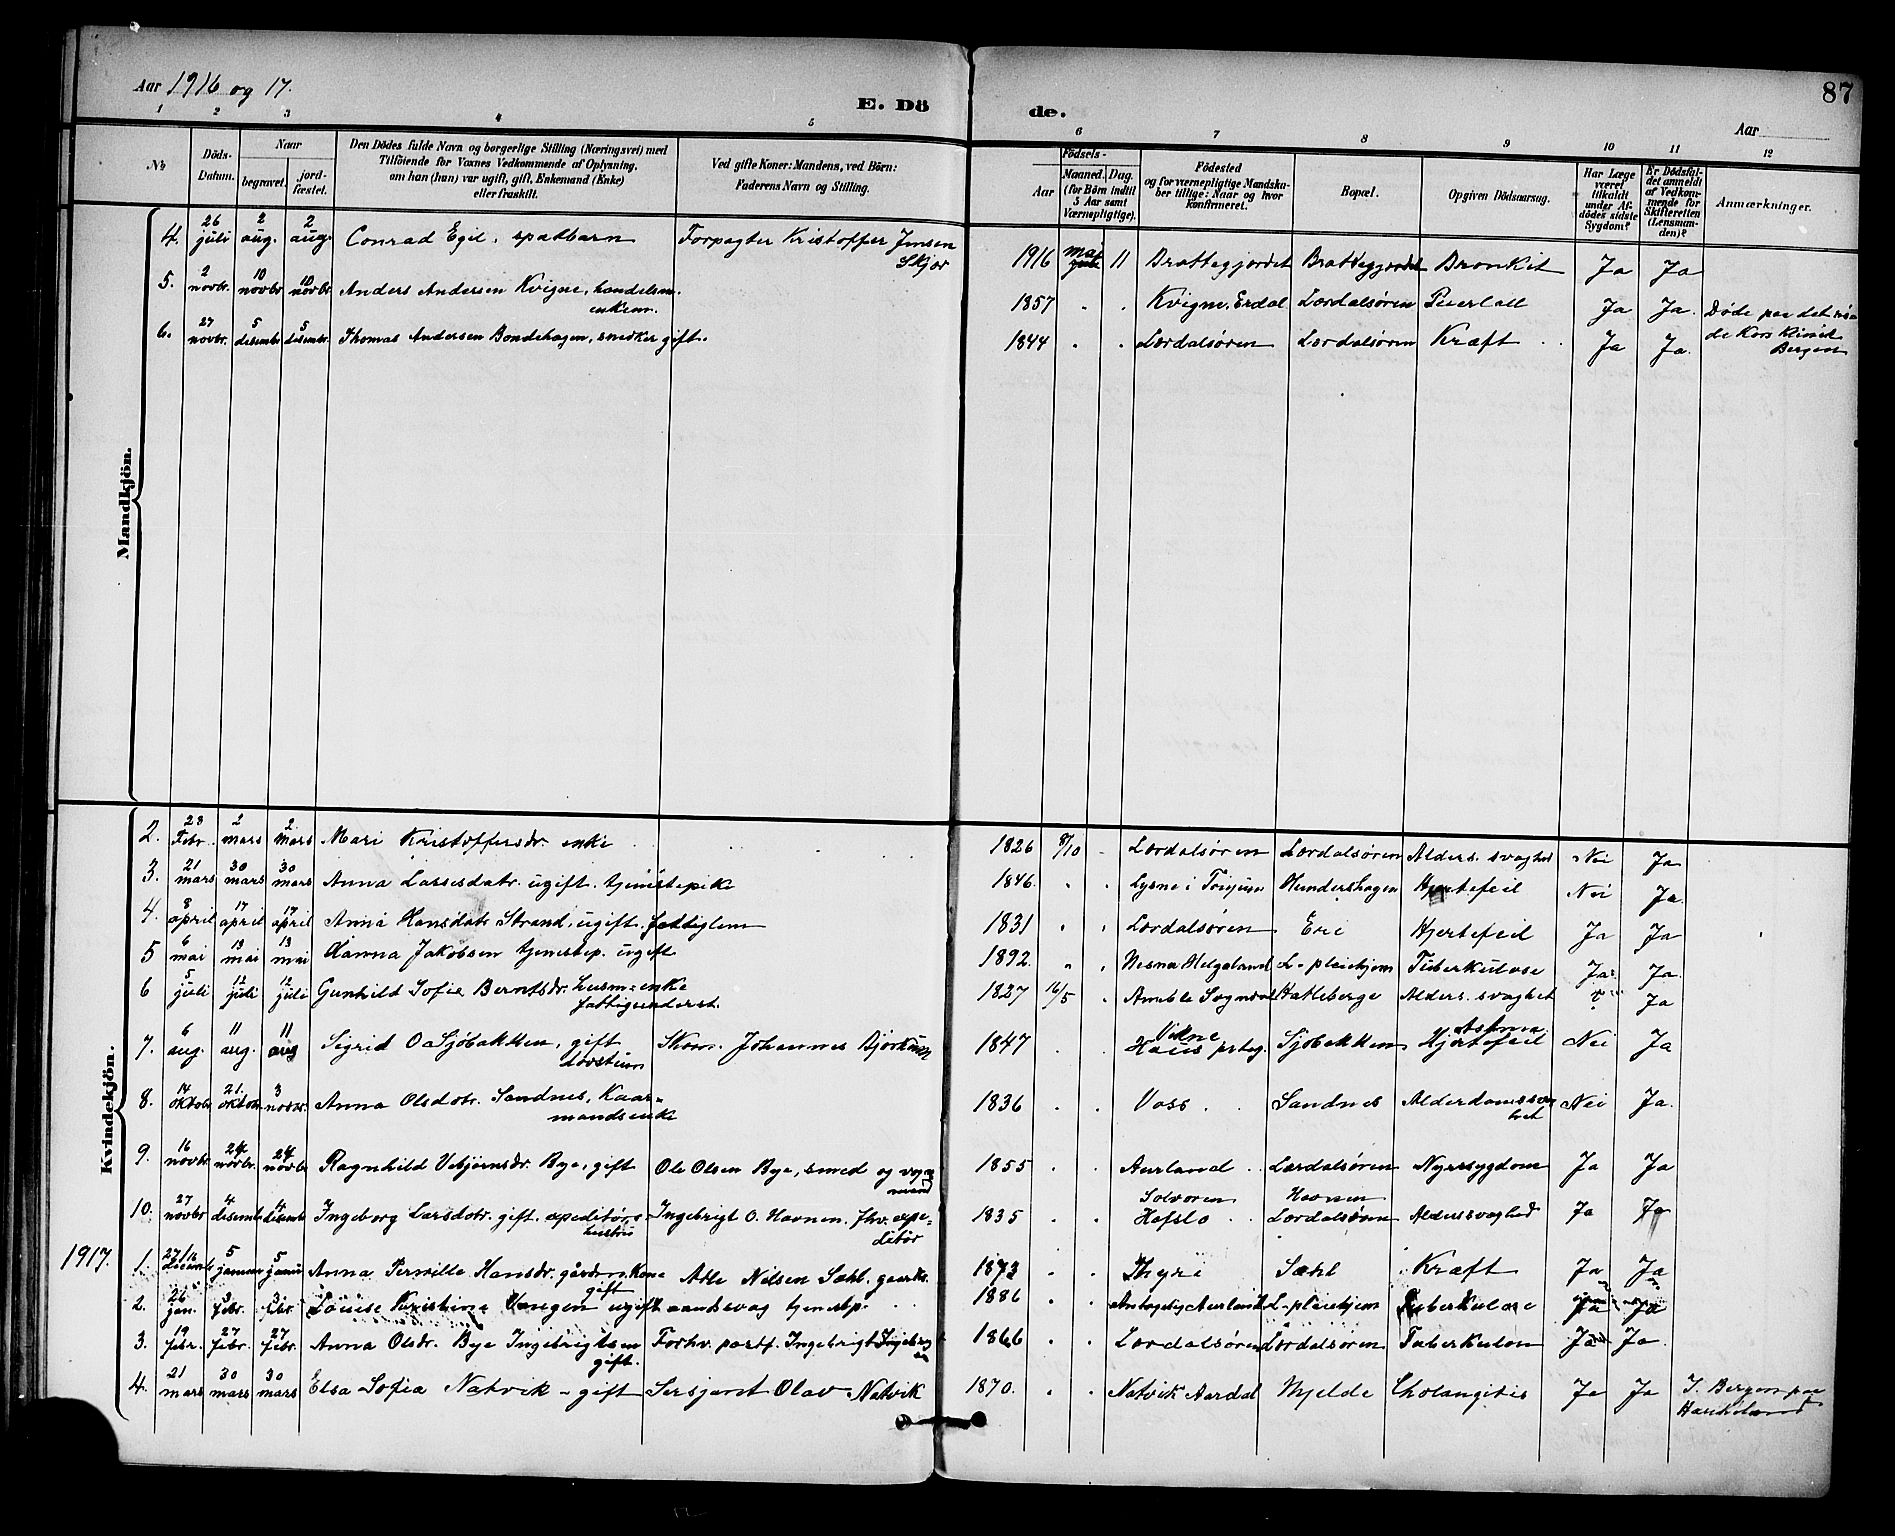 Aar 1916 og 17.
E. Dö
de.
87
Aar
1 2 3 4 5 6 7 8 9 10 11 12
No
Döds-Datum.
Naar
begravet.
jord-fæstet.
Den Dödes fulde Navn og borgerlige Stilling (Næringsvei) med
Tilföiende for Voxnes Vedkommende af Oplysning,
om han (hun) var ugift, gift, Enkemand (Enke)
eller fraskilt.
Ved gifte Koner: Mandens, ved Börn:
Faderens Navn og Stilling.
Födsels-
Aar
Maaned. Dag.
(for Börn indtil
5 Aar samt
Værnepligtige).
Födested
og for værnepligtige Mandska-
ber tillige: Naar og hvor
konfirmeret.
Bopæl.
Opgiven Dödsaarsag.
Har Læge
været
tilkaldt
under Af-
dödes sidste
Sygdom?
Er Dödsfal-
det anmeldt
af Vedkom-
mende for
Skifteretten
(Lensman-
den)?
Anmærkninger.
Mandkjön.
4. 26 juli 2 aug. 2 aug. Conrad Egil, spædbarn Forpagter Kristoffer Jensen Skjær 1916 mai 11 Brattegjordet Brattegjordet Bronkit Ja Ja
5. 2 novbr. 10 novbr 10 novbr Anders Andersen Kvigne, handelsm. enkem. 1857 " " Kvigne, Erdal Lærdalsøren Ja Ja Døde paa det rø-
6. 27 novbr. 5 desembr 5 desembr. Thomas Andersen Bondehagen, snedker gift. 1844 " " Lærdalsøren Lærdalsøren Kræft Ja Ja. de Kors Klinik Bergen
Kvindekjön.
2. 23 Febr. 2 mars 2 mars Mari Kristoffersdr. enke 1826 8/10 Lærdalsøren Lærdalsøren Alders. svaghet Nei Ja
3. 21 mars 30 mars 30 mars Anna Lassesdatr. ugift. tjenestepike 1846 " " Lysne i Hundershagen Hjertefeil Nei Ja
4. 8 april 17 april 17 april Anna Hansdatr Strand, ugift. fattiglem 1831 " " Lærdalsøren Eri Hjertefeil Ja Ja
5 6 mai 13 mai 13 mai Hanna Jakobsen tjenestep. ugift 1892. " " Nesna Helgeland L-pleiehjem Tuberkulose Ja Ja.
6 5 juli 12 juli 12 juli Gunhild Sofie Berntsdr. Husm-enke fattigunderst. 1837 16/5 Amble Sogndal Hatleberge Alders. svaghet Ja
7. 6 aug. 11 aug. 11 aug Sigrid O Sjøbakken, gift Skom. Johannes 1847 Vikne Haus prteg. Sjøbakken Astma Hjertefeil Nei Ja
8. 14 oktobr 21. oktobr. 3 novbr. Anna Olsdotr. Sandnes, Kaar-mandsenke 1836 Voss Sandnes Alderdomssvaghet Nei Ja
9. 16 novbr. 24 novbr. 24 novbr Ragnhild Vebjørnsdr. Bye, gift Ole Olsen Bye, smed og vogn mand 1855 Aurland Lærdalsøren Nyrsygdom Ja Ja
10. 27 novbr 4 desembr 4 desembr Ingeborg Larsdotr. gift. expeditørs hustru Ingebrigt O. Havnen, fhv. expe-ditør 1835 Solvorn Hafslo Havnen Lærdalsøren Alderssvaghed Ja Ja
1917.
1. 27/16 desembr 5 januar 5 januar Anna Pernille Hansdr. gårdm. Kone gift Atle Nilsen Sæhl, gaarbr. 1873 Thyri Sæhl Kræft Ja Ja
2. 26 jan. 3 febr. 3 febr. Louise Kristine Vangen ugift aandssvag tjenestp. 1886 Aurland L-pleiehjem Tuberkulose Ja Ja
3. 19 febr. 27 febr. 27 febr. Anna Olsdr. Bye Ingebrigtsen gift. Forhv. postf. Ingebrigt 1866 Lærdalsøren Lærdalsøren Tuberkulose Ja Ja.
4. 21 mars 30 mars 30 mars Elsa Sofia Natvik - gift Sersjant Olav Natvik 1870. Natvik Aardal Mjelde Cholangitis Ja Ja I Bergen paa Haukeland